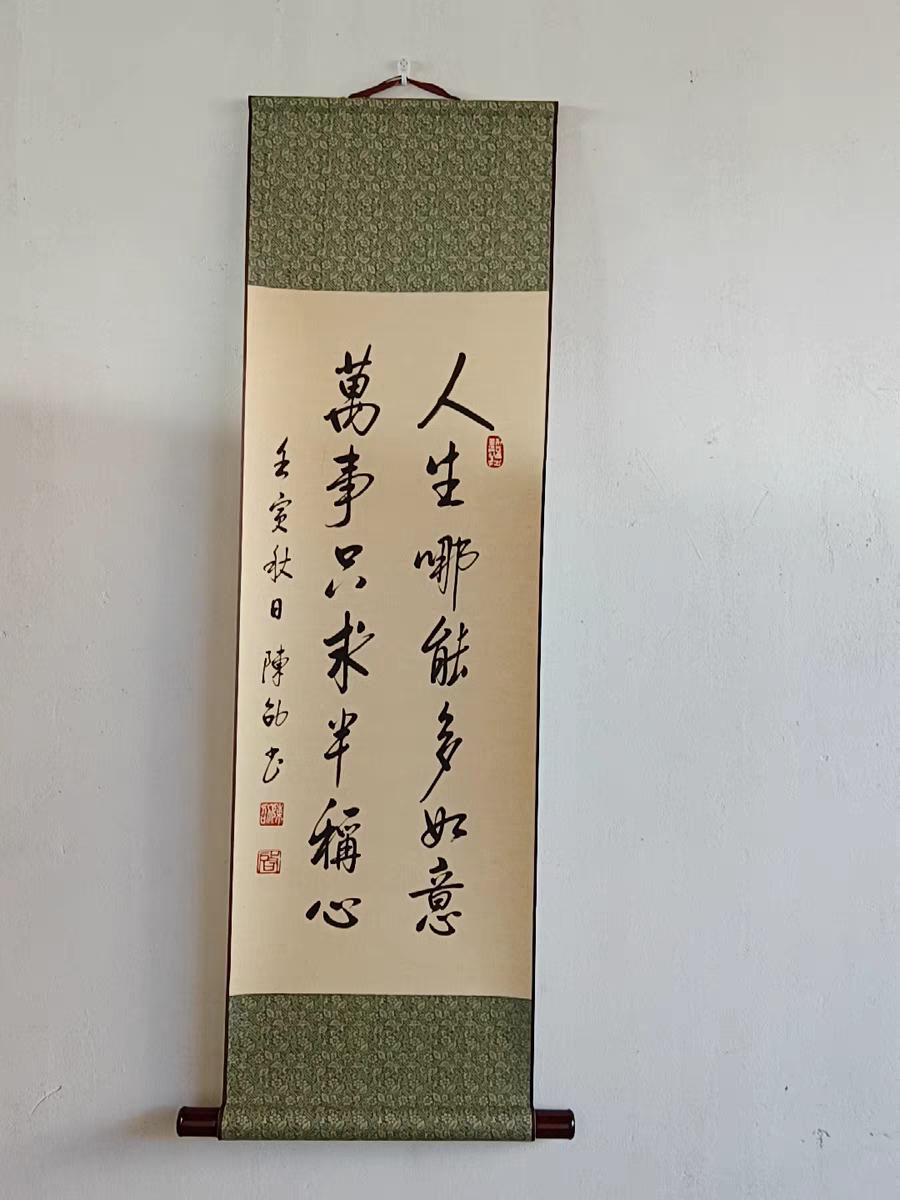 人生哪能多如意
萬事只求半稱心
壬寅秋日 陳劭书